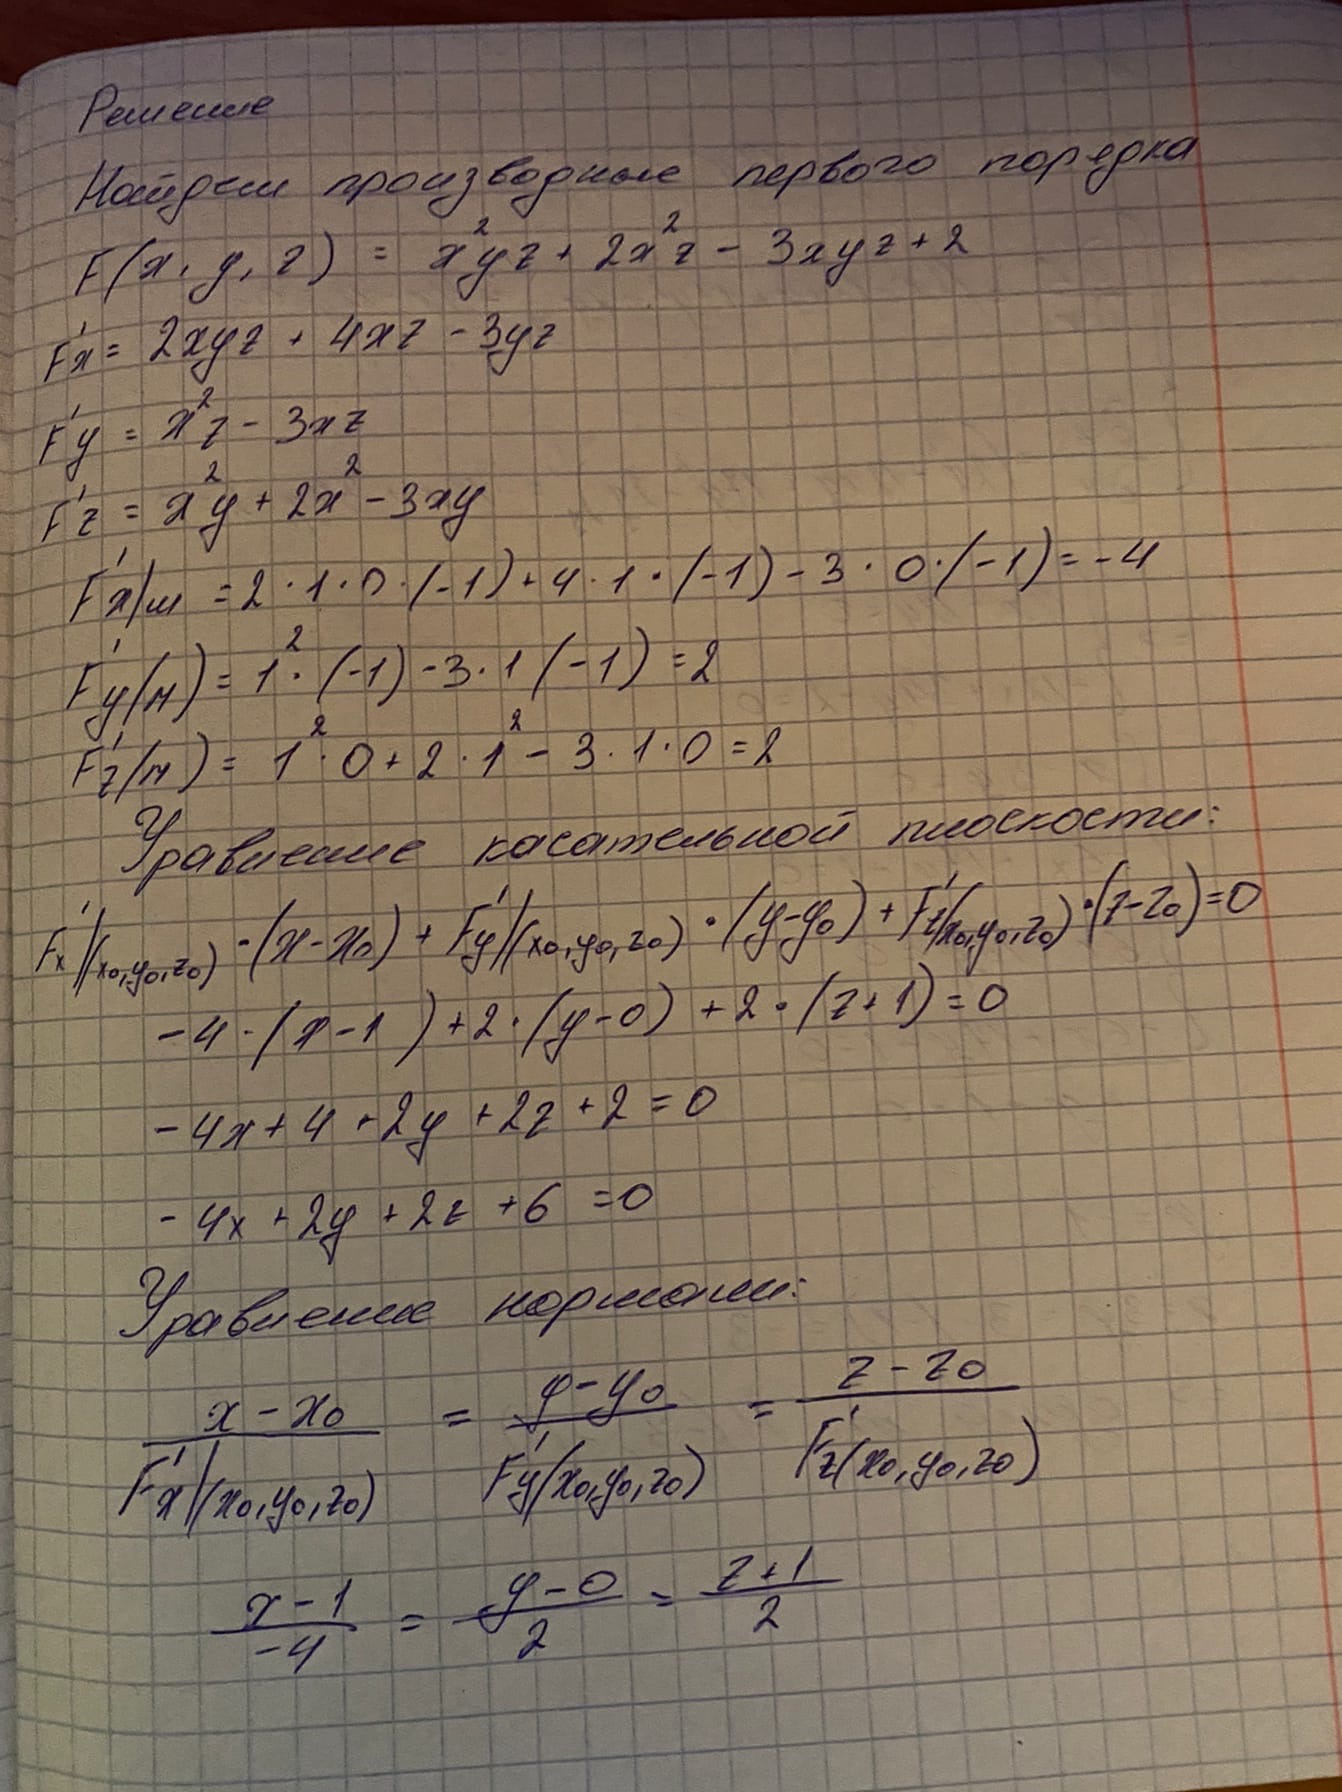 Решение
Найдем производные первого порядка
F(x, y, z) = x²yz + 2x²z - 3xyz + 2
F'x = 2xyz + 4xz - 3yz
F'y = x²z - 3xz
F'z = x²y + 2x² - 3xy
F'x|м = 2 · 1 · 0 · (-1) + 4 · 1 · (-1) - 3 · 0 · (-1) = -4
F'y(м) = 1² · (-1) - 3 · 1 (-1) = 2
F'z(м) = 1² · 0 + 2 · 1² - 3 · 1 · 0 = 2
Уравнение касательной плоскости:
F'x|(x₀,y₀,z₀) · (x-x₀) + F'y|(x₀,y₀,z₀) · (y-y₀) + F'z(x₀,y₀,z₀) · (z-z₀) = 0
-4 · (x-1) + 2 · (y-0) + 2 · (z+1) = 0
-4x + 4 + 2y + 2z + 2 = 0
-4x + 2y + 2z + 6 = 0
Уравнение нормали:
x - x₀ / F'x|(x₀,y₀,z₀) = y - y₀ / F'y(x₀,y₀,z₀) = z - z₀ / F'z(x₀,y₀,z₀)
x - 1 / -4 = y - 0 / 2 = z + 1 / 2